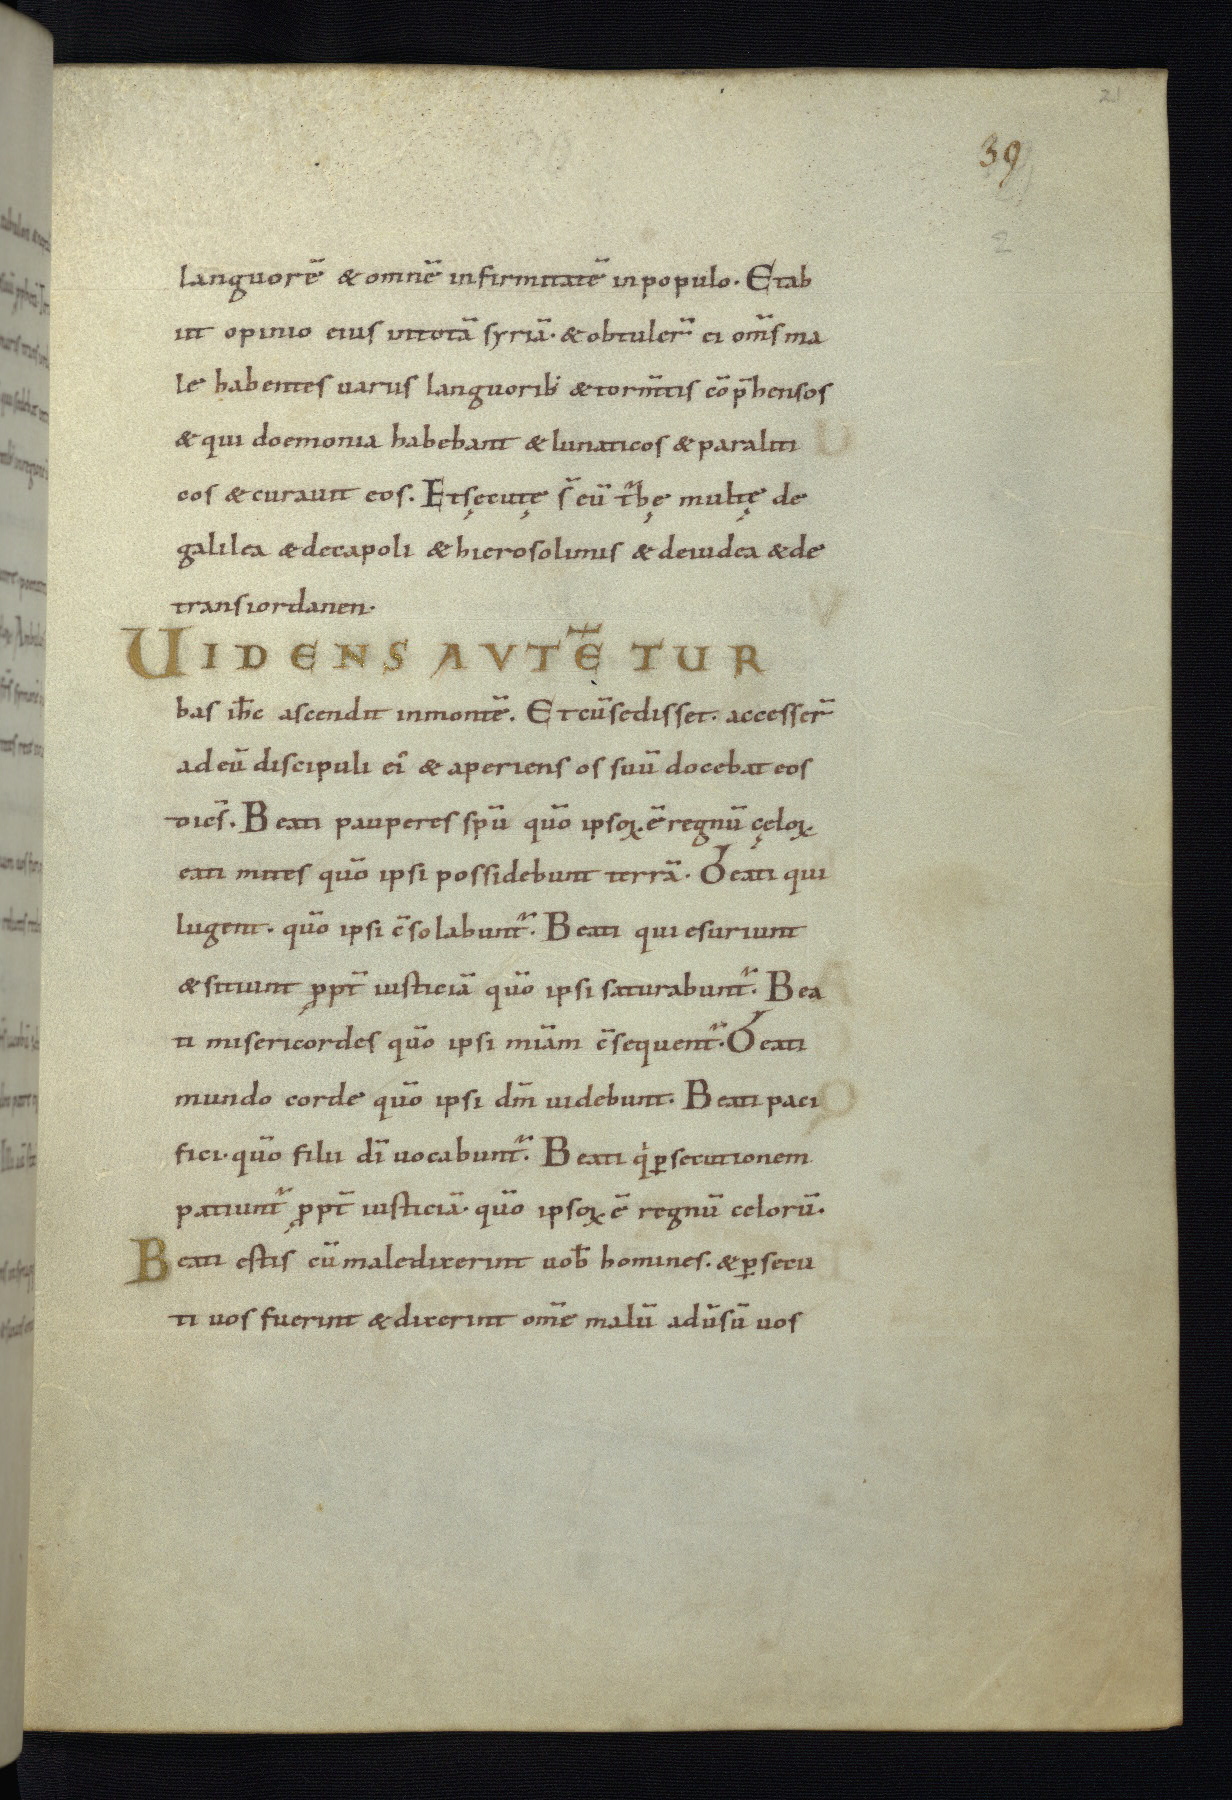 21
39
2
languorē & omnē infirmitatē inpopulo. Etab
iit opinio eius intotā syriā. & obtuler̄ ei om̄s ma
le habentes uariis languorib; & torm̄tis cōp̄hensos
& qui doemonia habebant & lunaticos & paraliti
cos & curauit eos. Etsęcutę s̄ eū t̄bę multę de
galilea & decapoli & hierosolimis & deiudea & de
transiordanen.
UIDENS AVTĒ TUR
bas ih̄c ascendit inmontē. Et cū sedisset. accesser̄
ad eū discipuli ei᷒ & aperiens os suū docebat eos
dicēs. Beati pauperes spū quō ipsoꝝ ē regnū cęloꝝ.
eati mites quō ipsi possidebunt terrā. Beati qui
lugent. quō ipsi c̄solabunt᷑. Beati qui esuriunt
& sitiunt ꝓpt̄ iusticiā quō ipsi saturabunt᷑. Bea
ti misericordes quō ipsi miām c̄sequent᷑. Beati
mundo corde quō ipsi dm̄ uidebunt. Beati paci
fici. quō filii dī uocabunt᷑. Beati qͥ ꝑsecutionem
patiunt᷑ ꝓpt̄ iusticiā. quō ipsoꝝ ē regnū celorū.
Beati estis cū maledixerint uob̄ homines. & ꝑsecu
ti uos fuerint & dixerint om̄e malū adūsū uos